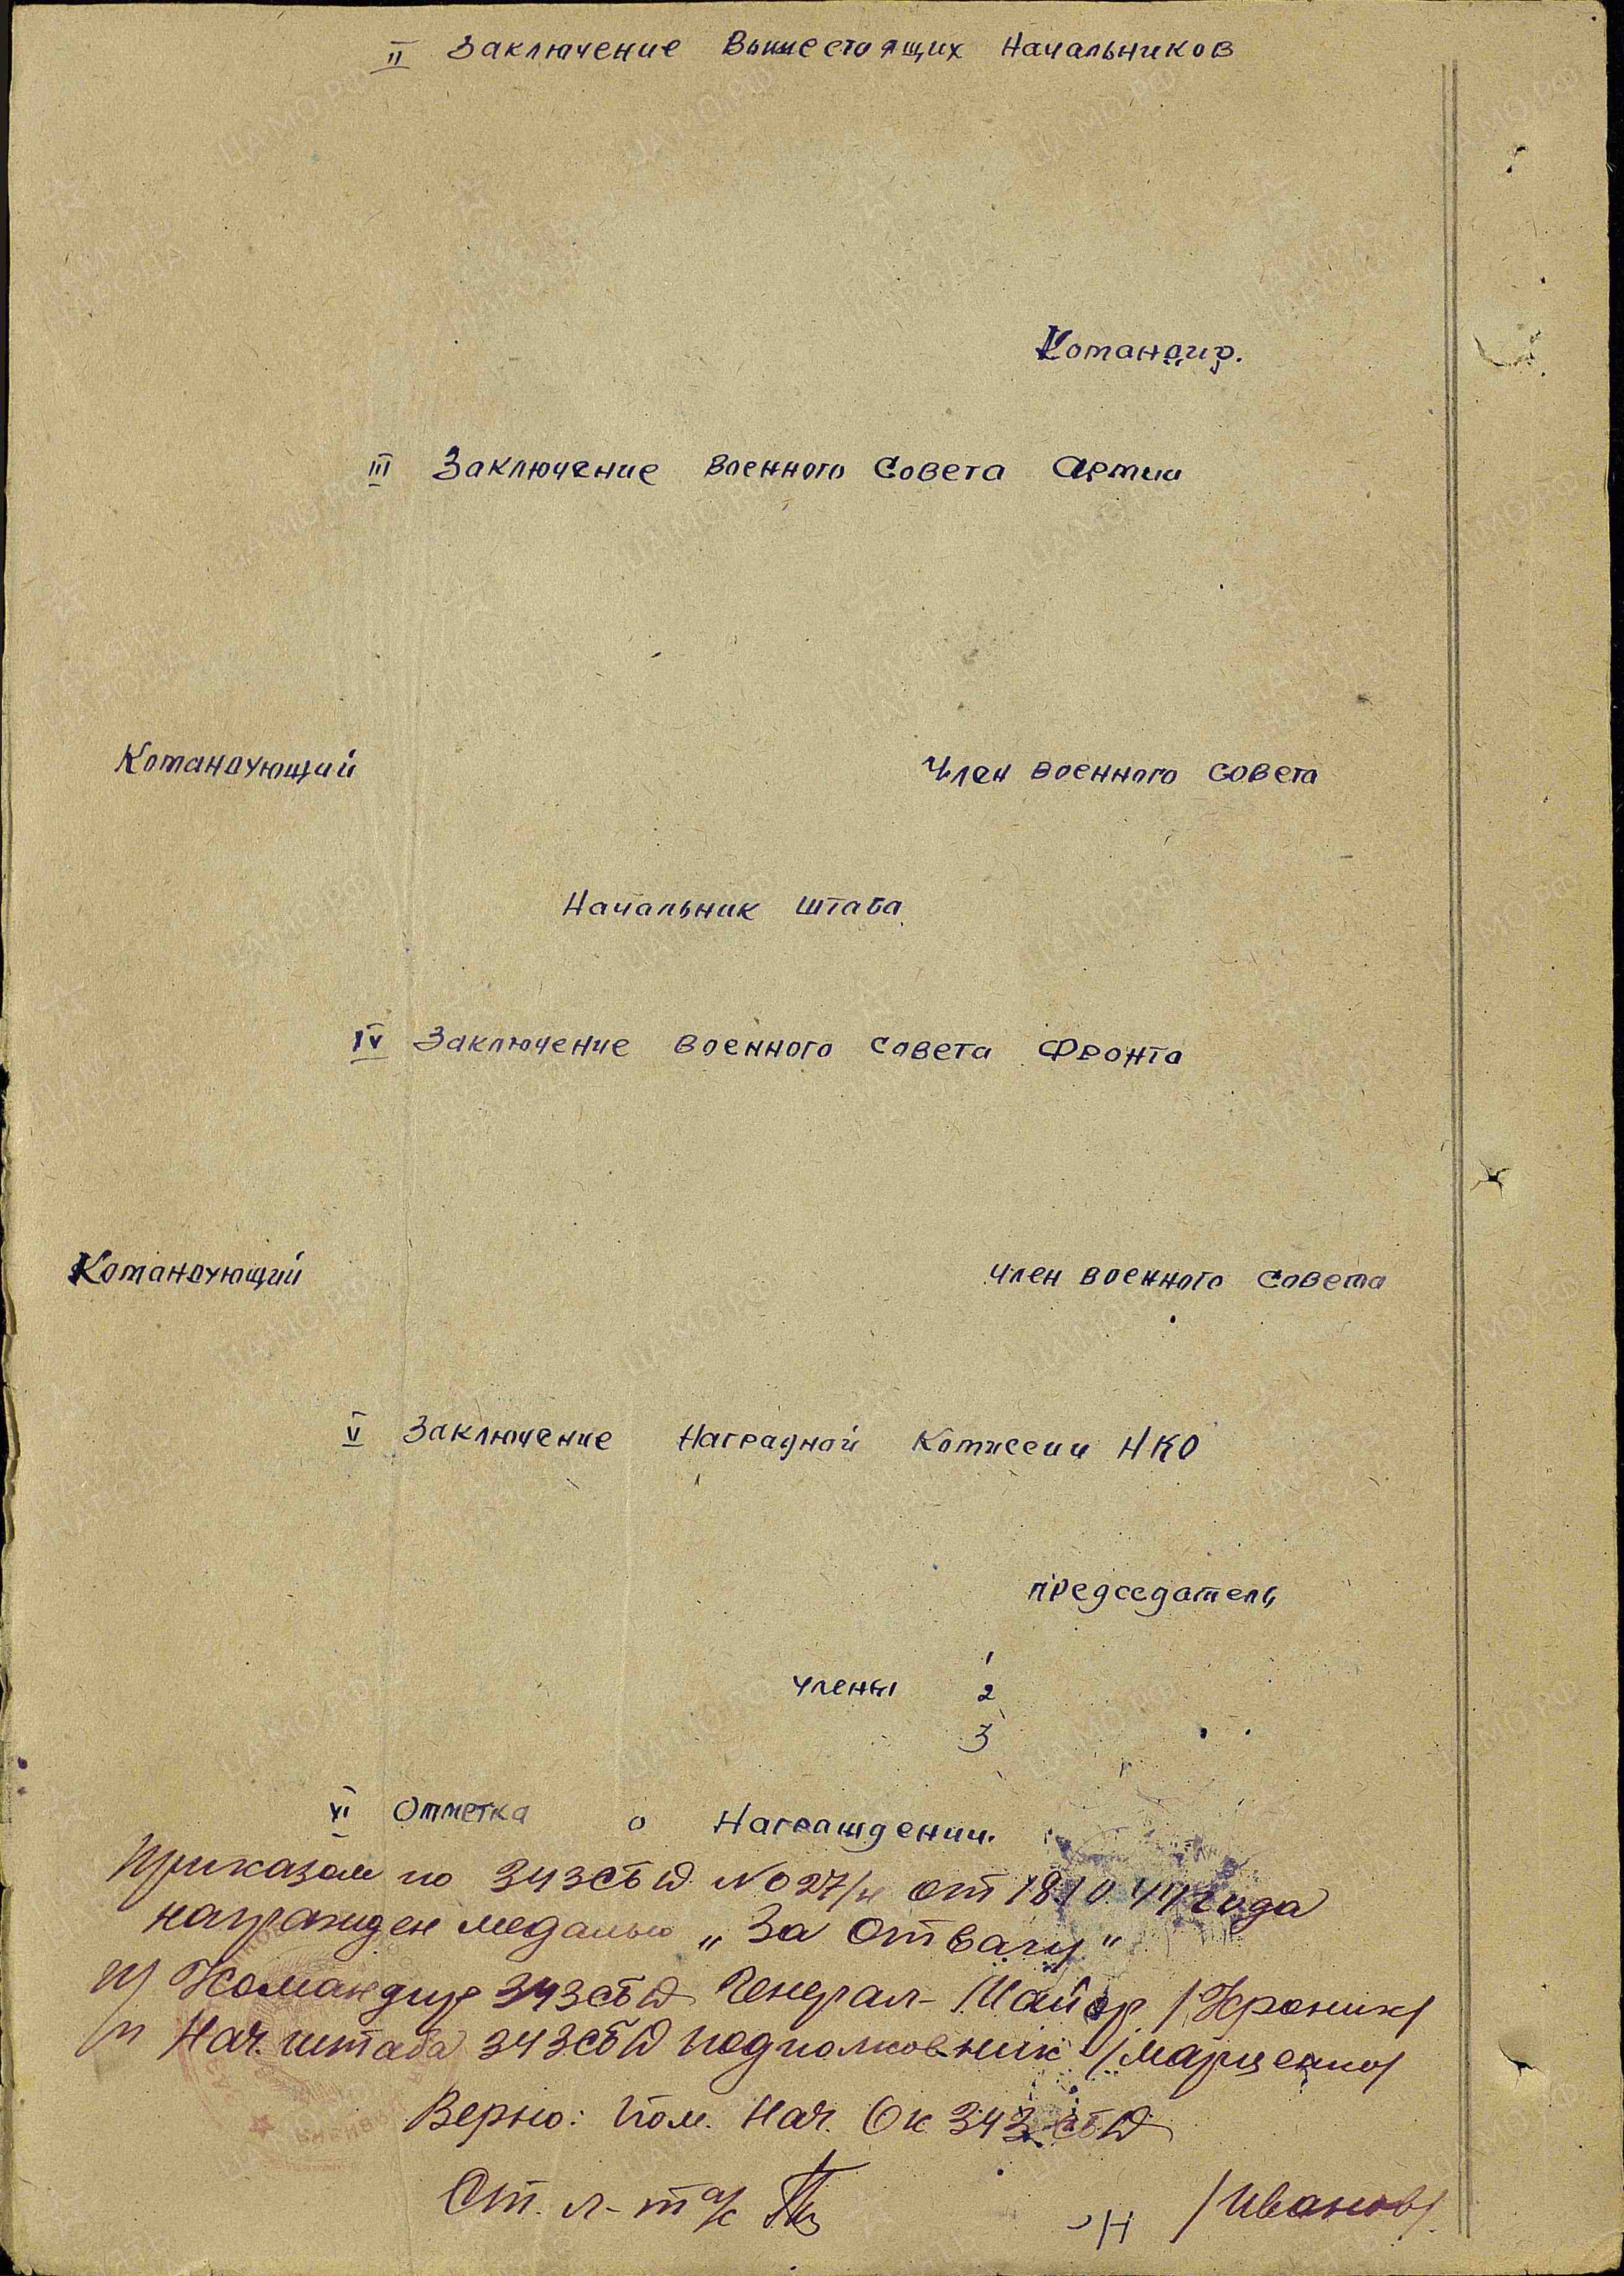 II Заключение Вышестоящих Начальников
Командир.
III Заключение Военного Совета Армии
Командующий Член Военного Совета
Начальник штаба
IV Заключение Военного Совета Фронта
Командующий Член Военного Совета
V Заключение Наградной Комиссии НКО
председатель
члены 1
2
3
VI Отметка о Награждении.
Приказом по 343 СБД No 27/н от 18.10.47 года
награжден медалью „За Отвагу"
п/ Командир 343 СБД Генерал-Майор /Кроник/
п Нач. штаба 343 СБД подполковник /Марценко/
Верно: Пом. Нач. Ок 343 СБД
Ст. л-т а/с /Иванов/